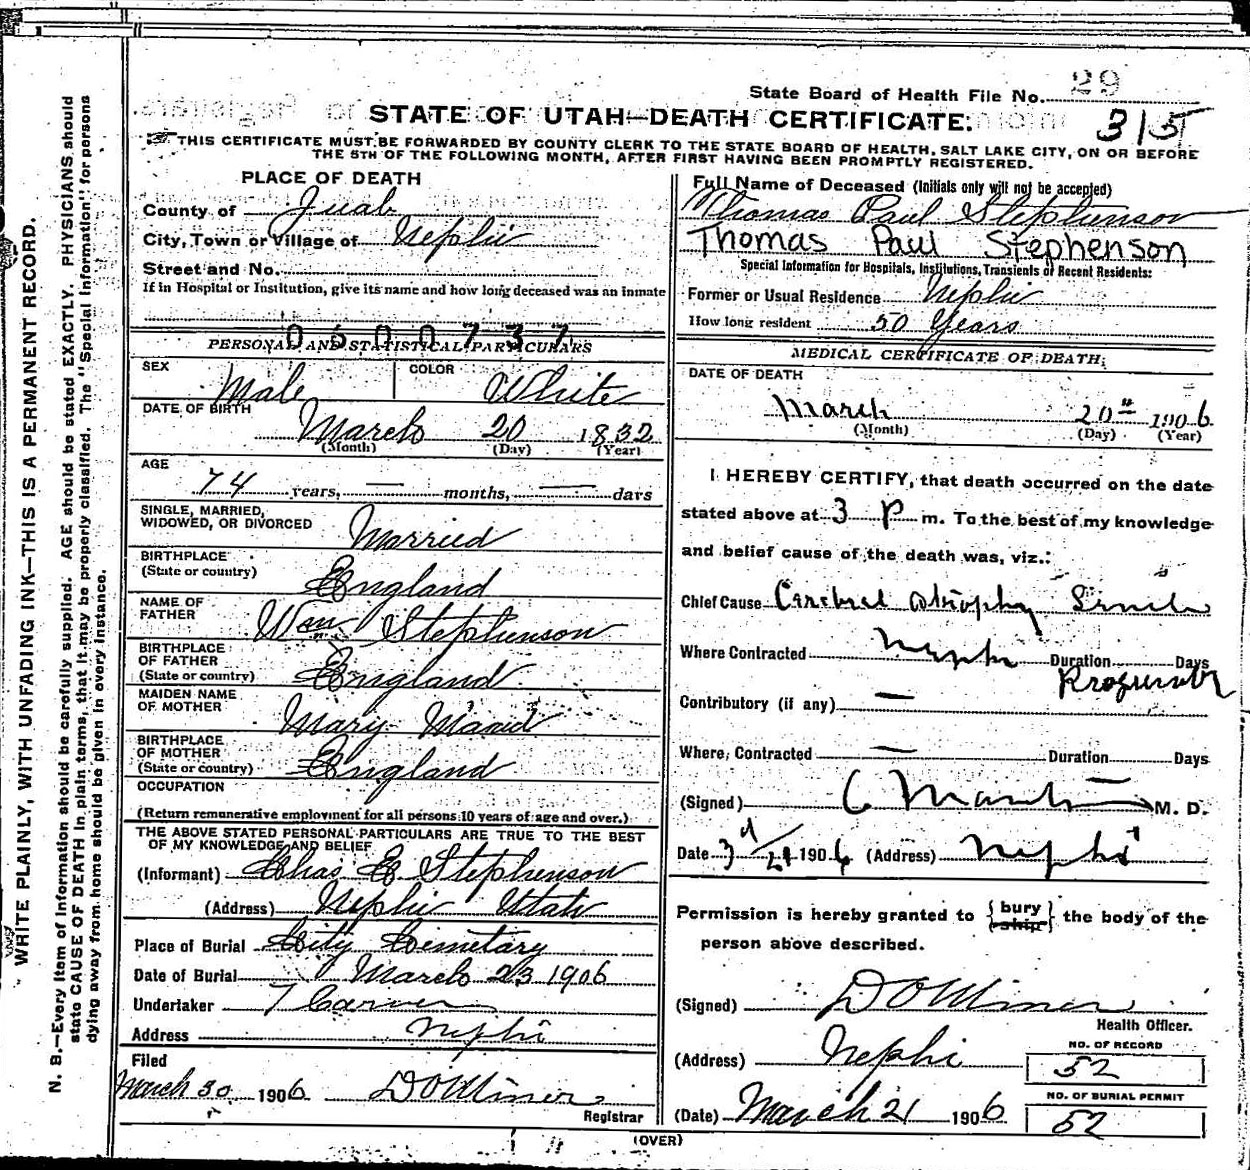 State Board of Health File No. 29
STATE OF UTAH—DEATH CERTIFICATE.
315
THIS CERTIFICATE MUST BE FORWARDED BY COUNTY CLERK TO THE STATE BOARD OF HEALTH, SALT LAKE CITY, ON OR BEFORE
THE 5TH OF THE FOLLOWING MONTH, AFTER FIRST HAVING BEEN PROMPTLY REGISTERED.
WRITE PLAINLY, WITH UNFADING INK—THIS IS A PERMANENT RECORD.
N. B.—Every item of information should be carefully supplied. AGE should be stated EXACTLY. PHYSICIANS should
state CAUSE OF DEATH in plain terms, that it may be properly classified. The "Special Information" for persons
dying away from home should be given in every instance.
PLACE OF DEATH
County of Juab
City, Town or Village of Nephi
Street and No.
If in Hospital or Institution, give its name and how long deceased was an inmate
0600737
PERSONAL AND STATISTICAL PARTICULARS
SEX Male COLOR White
DATE OF BIRTH
March 20 1832
(Month) (Day) (Year)
AGE
74 years, — months, — days
SINGLE, MARRIED,
WIDOWED, OR DIVORCED Married
BIRTHPLACE
(State or country) England
NAME OF
FATHER Wm Stephenson
BIRTHPLACE
OF FATHER
(State or country) England
MAIDEN NAME
OF MOTHER Mary
BIRTHPLACE
OF MOTHER
(State or country) England
OCCUPATION
(Return remunerative employment for all persons 10 years of age and over.)
THE ABOVE STATED PERSONAL PARTICULARS ARE TRUE TO THE BEST
OF MY KNOWLEDGE AND BELIEF
(Informant) Chas E. Stephenson
(Address) Nephi Utah
Place of Burial City Cemetary
Date of Burial March 23 1906
Undertaker T Carver
Address Nephi
Filed
March 30 1906 D O Miner
Registrar
Full Name of Deceased (Initials only will not be accepted)
Thomas Paul Stephenson
Thomas Paul Stephenson
Special Information for Hospitals, Institutions, Transients or Recent Residents:
Former or Usual Residence Nephi
How long resident 50 Years
MEDICAL CERTIFICATE OF DEATH.
DATE OF DEATH
March 20th 1906
(Month) (Day) (Year)
I HEREBY CERTIFY, that death occurred on the date
stated above at 3 P m. To the best of my knowledge
and belief cause of the death was, viz.:
Chief Cause Cerebral atrophy Senile
Where Contracted Nephi Duration Days
Contributory (if any) —
Where Contracted — Duration Days
(Signed) M. D.
Date 3/21 1906 (Address) Nephi
Permission is hereby granted to {bury ship} the body of the
person above described.
(Signed) D O Miner
Health Officer.
(Address) Nephi
NO. OF RECORD
52
(Date) March 21 1906
NO. OF BURIAL PERMIT
52
(OVER)